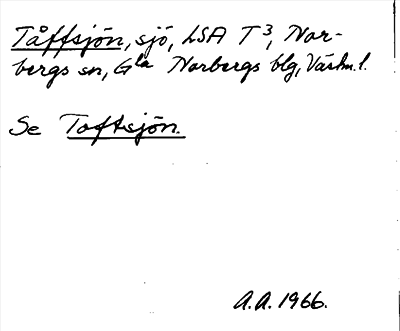 Tåffsjön, sjö, LSA T³, Nor-
bergs sn, Gla Norbergs blg, Västm. l.
Se Toftsjön.
A.A. 1966.